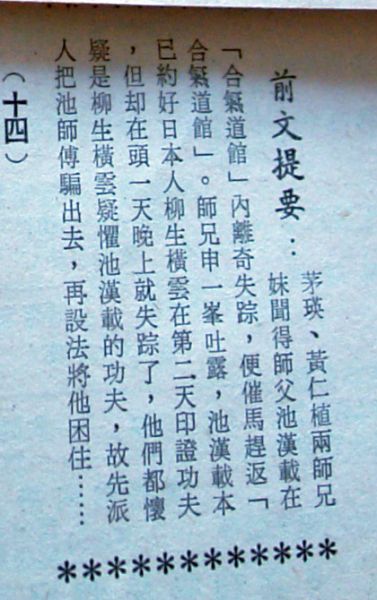 前文提要：茅瑛、黃仁植兩師兄
妹聞得師父池漢載在
「合氣道館」內離奇失踪，便催馬趕返「
合氣道館」。師兄申一峯吐露，池漢載本
已約好日本人柳生橫雲在第二天印證功夫
，但却在頭一天晚上就失踪了，他們都懷
疑是柳生橫雲疑懼池漢載的功夫，故先派
人把池師傅騙出去，再設法將他困住……
************
（十四）